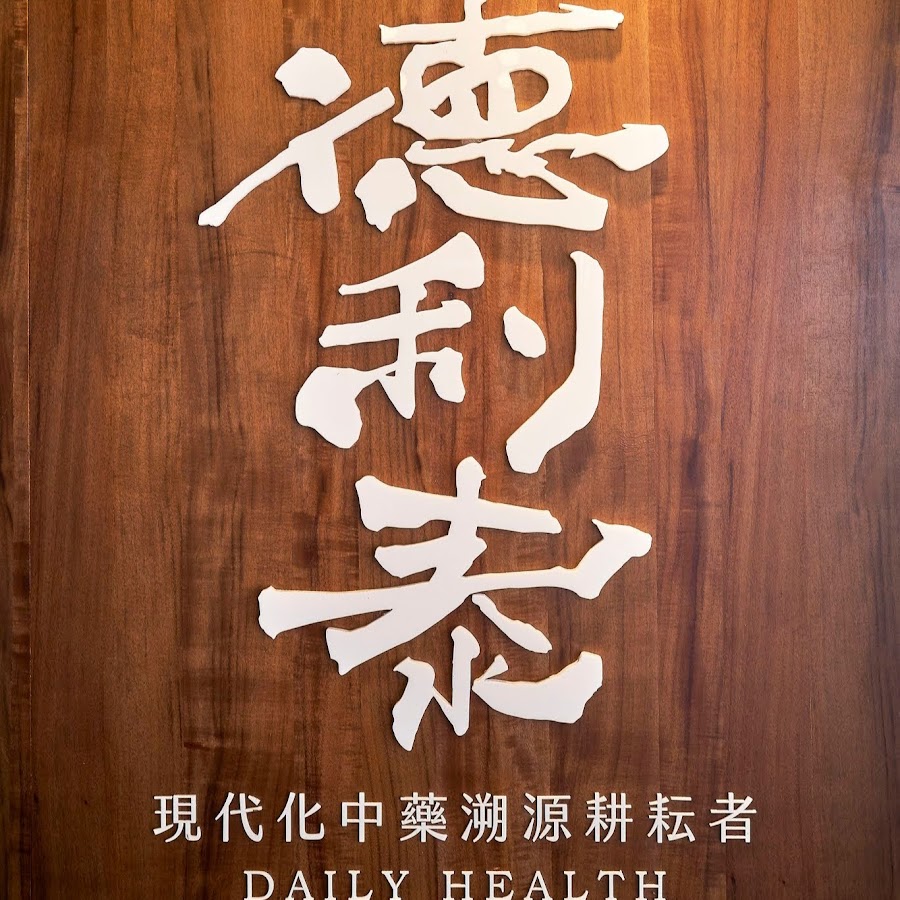 德利泰
現代化中藥溯源耕耘者
DAILY HEALTH